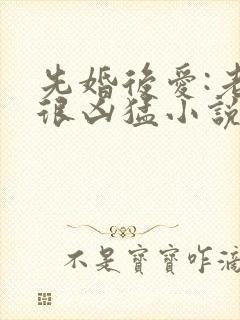 先婚後愛:老
很凶猛小說
不是寶寶咋滴